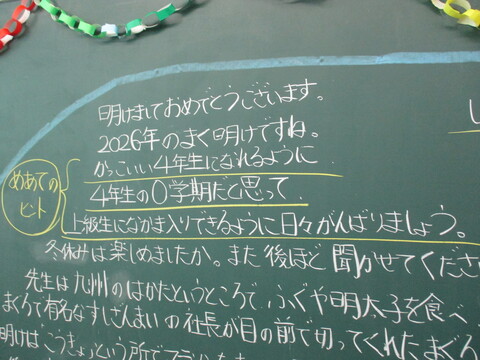 明けましておめでとうございます。
2026年のまく明けですね。
かっこいい4年生になれるように
4年生の0学期だと思って
めあてのヒント
上級生になかま入りできるように日々がんばりましょう。
冬休みは楽しめましたか。また後ほど聞かせてくださ
先生は九州のはかたというところで、ふぐや明太子を食べ
まぐろで有名なすしざんまいの社長が目の前で切ってくれたまぐろ
明けは"こうきょ"という所で